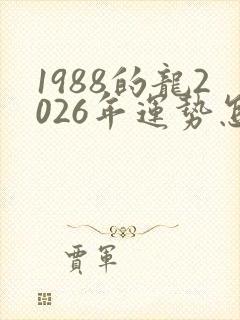 1988的龍2
026年運勢怎
賈軍